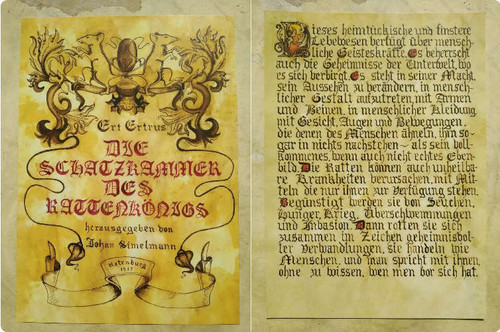 Ert Ertrus
DIE
SCHATZKAMMER
DES
RATTENKÖNIGS
herausgegeben von
Johan Simelmann
Dieses heimtückische und finstere
Lebewesen verfügt über mensch-
liche Geisteskräfte. Es beherrscht
auch die Geheimnisse der Unterwelt, wo
es sich verbirgt. Es steht in seiner Macht,
sein Aussehen zu verändern, in mensch-
licher Gestalt aufzutreten, mit Armen
und Beinen, in menschlicher Kleidung,
mit Gesicht, Augen und Bewegungen,
die denen des Menschen ähneln, ihm so-
gar in nichts nachstehen – als sein voll-
kommenes, wenn auch nicht echtes Eben-
bild. Die Ratten können auch unheilba-
re Krankheiten verursachen, mit Mit-
teln die nur ihnen zur Verfügung stehen.
Begünstigt werden sie von Seuchen,
Hunger, Krieg, Überschwemmungen
und Invasion. Dann rotten sie sich
zusammen im Zeichen geheimnisvol-
ler Verwandlungen, sie handeln wie
Menschen, und man spricht mit ihnen,
ohne zu wissen, wen man vor sich hat.